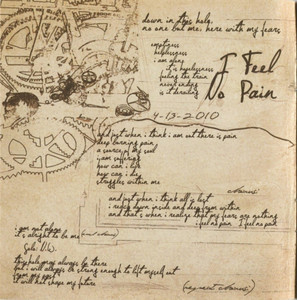 down in this hole,
no one but me, here with my fears
emptiness
helplessness
i am alone
I Feel
No Pain
it is hopelessness
feeling the train
never ending
is it derailing
4-13-2010
and just when i think i am out there is pain
deep burning pain
a source of my soul
i am suffering
how can i life
how can i die
struggles within me
(chorus)
and just when i think all is lost
i reach down inside and deep from within
and that's when i realize that my fears are nothing
i feel no pain I feel no pain
i am not alone
it's alright to be me
this hole may always be there
but i will always be strong enough to lift myself out
i will not shape my future
(repeat chorus)